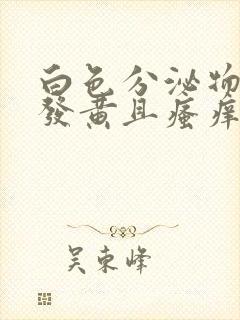 白色分泌物
發黄且瘙痒
吴東峰